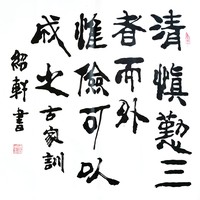 清慎勤三
者而外
惟儉可以
成之古家訓
紹軒書